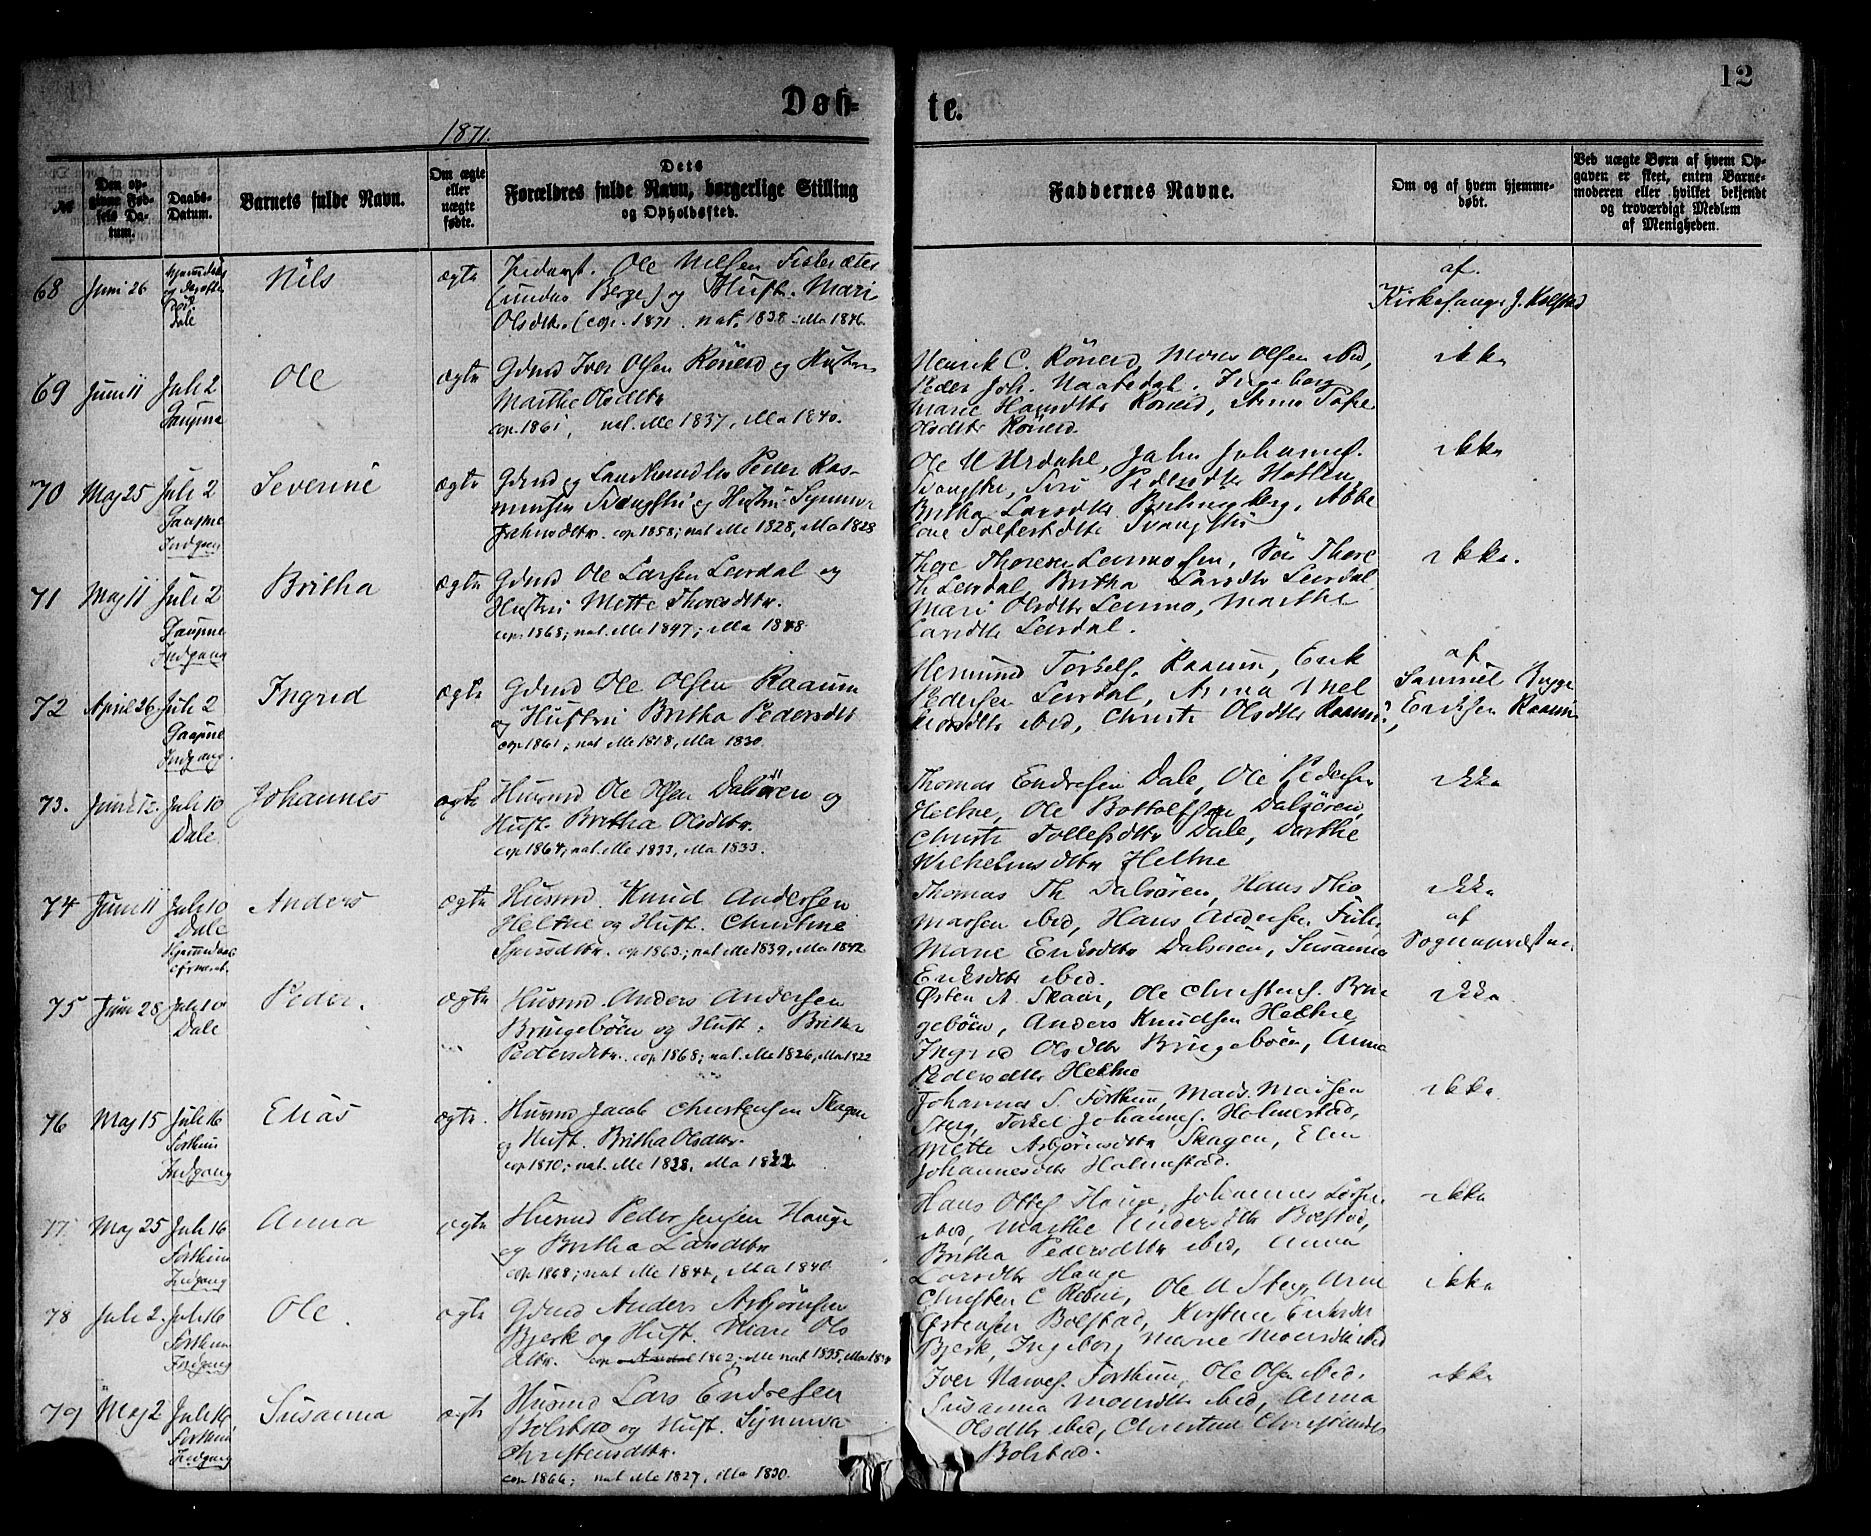 12
Døb-
te.
1871.
№
Den op-
givne Fød-
sels Da-
tum.
Daabs-
Datum.
Barnets fulde Navn.
Om ægte
eller
uægte
fødte.
Dets
Forældres fulde Navn, borgerlige Stilling
og Opholdssted.
Faddernes Navne.
Om og af hvem hjemme-
døbt.
Ved uægte Børn af hvem Op-
gaven er skeet, enten Barne-
moderen eller hvilket bekjendt
og troværdigt Medlem
af Menigheden.
68 Juni 26
Dale
Nils
ægte
Ole Nielsen
og Hust. Mari
Olsdtr. (cop. 1871. nat. 1838. Ma 1846.
af.
Kirkesanger J. Kolstad
69 Juni 11 Juli 2
Gaupne
Ole
ægte
Gdmd Iver Olsen Röneid og Hustru
Marthe Olsdtr
cop. 1861, nat. Me 1837, Ma 1840.
Henrik C. Röneid, Mons Olsen ibid,
Peder Joh. Ingeborg
Marie Hansdtr Röneid, Anna
Olsdtr Röneid.
ikke
70 Maj 25 Juli 2
Gaupne
Indgang
Severine
ægte
Gdmd og Landhandler Peder Ras-
mussen og Hustru Synneva
cop. 1858; nat Me 1828, Ma 1828
Ole U Urdahl, John Johannes.
Pedersdtr
Britha Larsdtr
ikke
71 Maj 11 Juli 2
Gaupne
Indgang
Britha
ægte
Gdmd Ole Larsen Leirdal og
Hustru Mette Thoresdtr.
cop. 1868; nat. Me 1847; Ma 1848.
Thore Thoresen Leirmo
Th Leirdal Britha Larsdtr Leirdal
Mari Olsdtr Leirmo, Marthe
Larsdtr Leirdal.
ikke.
72 April 26 Juli 2
Gaupne
Indgang.
Ingrid
ægte
Gdmd Ole Olsen Raaum
og Hustru Britha Pedersdtr
cop 1861; nat Me 1818, Ma 1830.
Hermund Torkels. Raaum, Erik
Pedersen Leirdal, Anna
ibid, Christi Olsdtr Raaum,
af
Samuel
Eriksen Raaum
73. Juni 12. Juli 10
Dale
Johannes
ægte
Husmd Ole Olsen Dalsören og
Hust. Britha Olsdtr.
cop 1864; nat. Me 1833, Ma 1833.
Thomas Endresen Dale, Ole Pedersen
Heltne, Ole Bottolfsen Dalsören,
Christi Tollefsdtr Dale, Dorthe
Wilhelmsdtr Heltne
ikke
74 Juni 11 Juli 10
Dale
Anders
ægte
Husmd Knud Andersen
Heltne og Hust. Christine
Sjursdtr. cop 1863; nat Me 1839, Ma 1842.
Thomas Th Dalsören, Hans Tho
massen ibid, Hans Andersen
Marie Eriksdtr Dalsören, Susanna
Eriksdtr ibid.
ikke
af
Sognepræsten
75 Juni 28 Juli 10
Dale
Peder.
ægte
Husmd. Anders Andersen
Bringeböen og Hust. Britha
Pedersdtr. cop 1868; nat. Me 1826, Ma 1822
Østen A Skaar, Ole Christens. Brin
gebøen, Anders Knudsen Heltne
Ingrid Olsdtr Bringebøen, Anna
Pedersdtr Heltne
ikke
76 Maj 15 Juli 16
Forthun
Indgang
Elias
ægte.
Husmd Jacob Christensen Skagen
og Hust. Britha Olsdtr.
cop 1870; nat Me 1838, Ma
Johannes S Forthun, Mads. Madsen
Steig, Torkel Johannes. Holmestad,
Mette Asbjörnsdtr Skagen, Elen
Johannesdtr Holmestad.
ikke
77 Maj 25 Juli 16
Forthun
Indgang
Anna
ægte
Husmd Peder Jensen Hauge
og Britha Larsdtr
cop 1868; nat Me 1841, Ma 1840.
Hans Ottes Hauge, Johannes
ibid, Marthe Andersdtr Bolstad,
Britha Pedersdtr ibid, Anna
Larsdtr Hauge
ikke
78 Juli 2. Juli 16
Forthun
Indgang
Ole.
ægte
Gdmd Anders Asbjörnsen
Bjerk og Hust. Mari Ols
dtr. cop 1862; nat 1835, Ma
Christen C Ole A Steig, Arne
Østensen Bolstad, Kirstine Eriksdtr
Bjerk, Ingeborg Marie Monsdtr ibid
ikke
79 Maj 2 Juli 16
Forthun
Indgang
Susanna
ægte
Husmd Lars Endresen
Bolstad og Hust. Synneva
Christensdtr.
cop 1866; nat Me 1827, Ma 1830.
Iver Forthun, Ole Olsen ibid.
Susanna Monsdtr ibid, Anna
Olsdtr ibid, Christine
Bolstad.
ikke